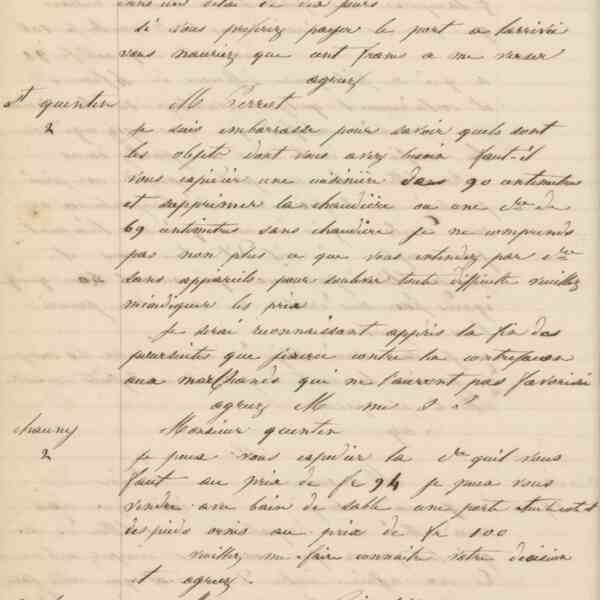 dans un délai de dix jours
si vous preferez payer le port a larrivée
vous nauriez que cent francs a me verser
agreez
St quentin M Perret
2 je suis embarrassé pour savoir quels sont
les objets dont vous avez besoin faut-il
vous expedier une cuisinière dans 90 centimetres
et supprimer la chaudière ou une cre de
69 centimetres sans chaudière je ne comprends
pas non plus ce que vous entendez par cre
sans appareils pour toute difficulté veuillez
mindiquer les prix
je serai reconnaissant appres la fin des
poursuites que jexerce contre la contrefacon
aux marchands qui me lauront pas favorisé
agreez M mes S S
chauny Monsieur quentin
2 je puis vous expedier la cre quil vous
faut au prix de fr 94 je puis vous
vendre avec bain de sable une porte
des pieds ornés au prix de fr 100
veuillez me faire connaitre votre decision
et agreez.